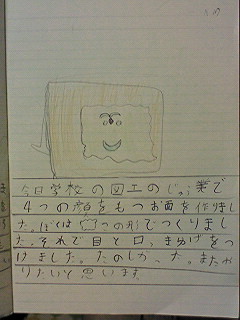 今日学校の図工のじゅ業で
4つの顔をもつお面を作りまし
た。ぼくは つの形でつくりまし
た。それで目と口、まゆげをつ
けました。たのしかった。またや
りたいと思います